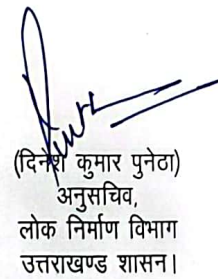 (दिनेश कुमार पुनेठा)
अनुसचिव,
लोक निर्माण विभाग
उत्तराखण्ड शासन।